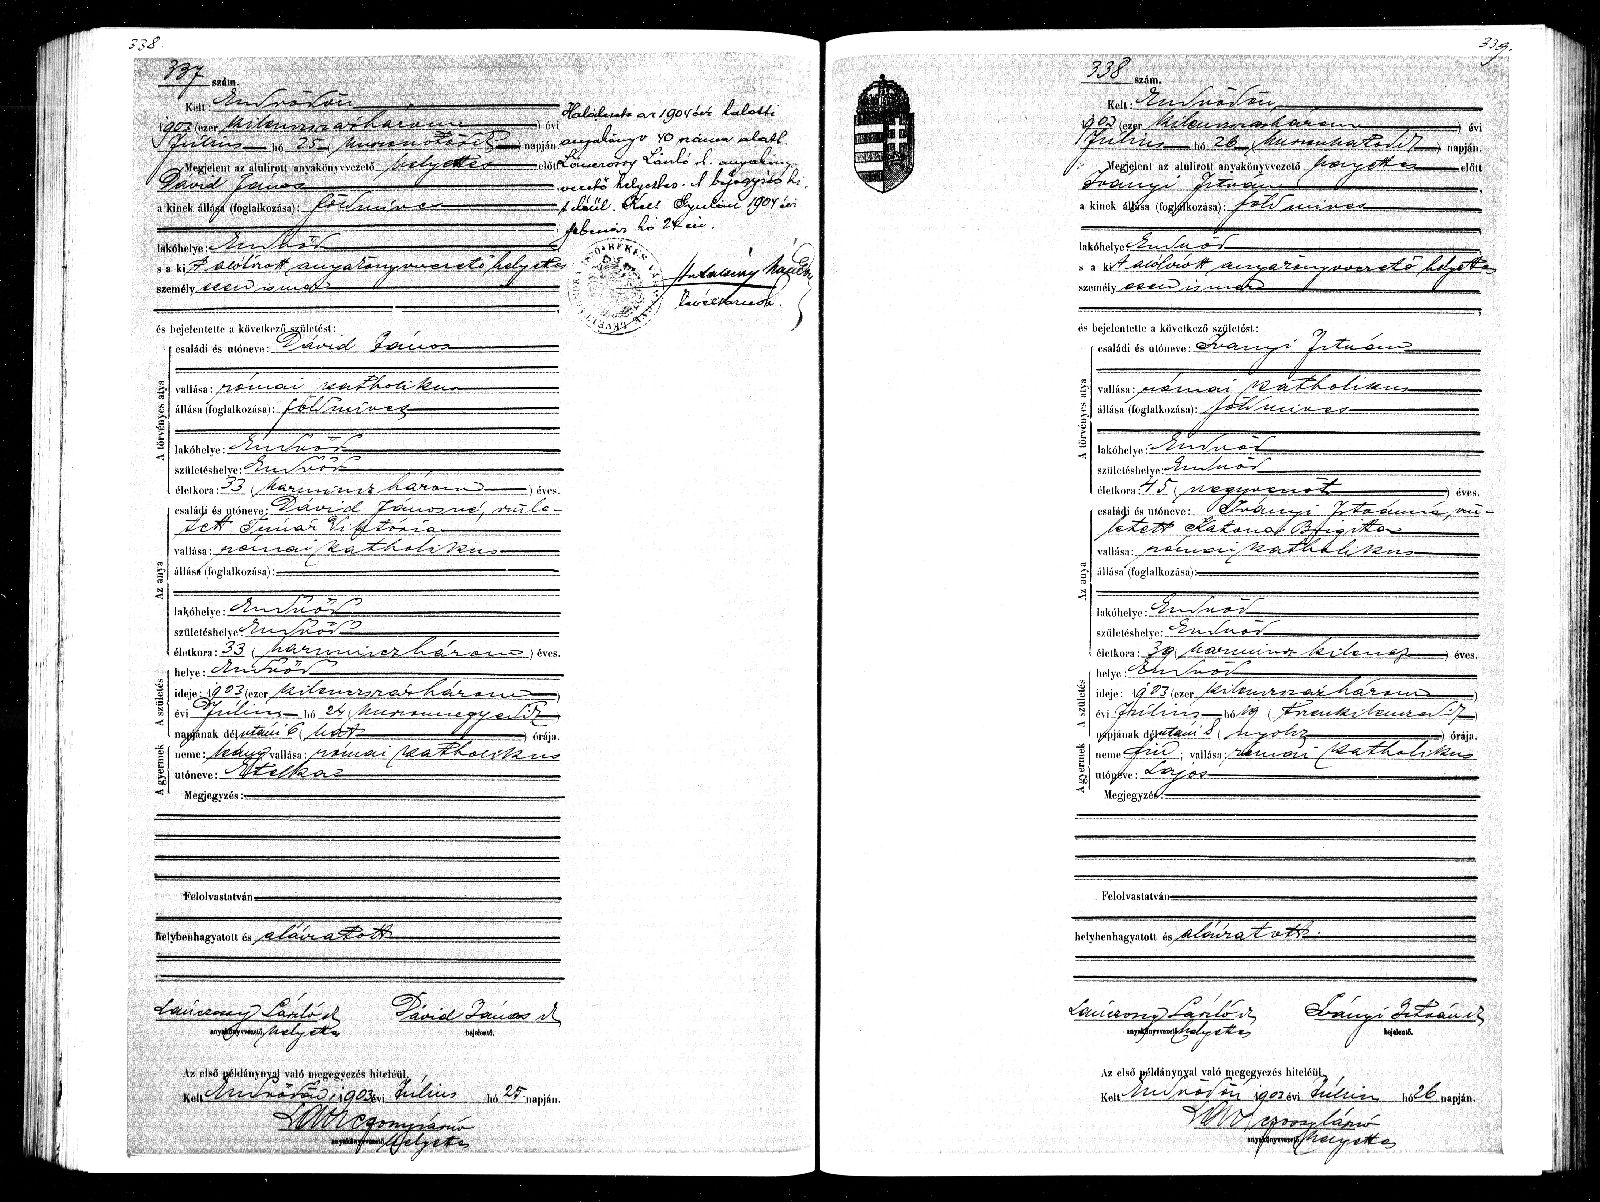 338.
337 szám.
Kelt: Endrődön
1903 (ezer kilenczszázhárom) évi
Július hó 25 (huszonötödik) napján
Megjelent az alulirott anyakönyvvezető helyettes előtt
Dávid János
a kinek állása (foglalkozása): földmíves
lakóhelye: Endrőd
s a kit alólírott anyakönyvvezető helyettes
személyesen ismer
és bejelentette a következő születést:
A törvényes atya
családi és utóneve: Dávid János
vallása: római katholikus
állása (foglalkozása): földmíves
lakóhelye: Endrőd
születéshelye: Endrőd
életkora: 33 (harminczhárom) éves.
Az anya
családi és utóneve: Dávid Jánosné, szüle-
tett Timár Viktória
vallása: római katholikus
állása (foglalkozása):
lakóhelye: Endrőd
születéshelye: Endrőd
életkora: 33 (harminczhárom) éves.
A születés
helye: Endrőd
ideje: 1903 (ezer kilenczszázhárom)
évi Július hó 24 (huszonnegyedik)
napjának délutáni 6 (hat) órája.
A gyermek
neme: leány; vallása: római katholikus
utóneve: Etelka
Megjegyzés:
Felolvastatván
helybenhagyatott és aláíratott
Lánczossy László
anyakönyvvezető helyettes
Dávid János
bejelentő.
Az első példánynyal való megegyezés hiteléül,
Kelt Endrődön, 1903 évi Július hó 25 napján.
anyakönyvvezető helyettes
Halálesete az 1904 évi halotti
anyakönyv 40 száma alatt.
László anyaköny
vezető helyettes. A bejegyzés hi
teléül. Kelt Gyulán 1904 évi
február hó 24 én.
339.
338 szám.
Kelt: Endrődön
1903 (ezer kilenczszázhárom) évi
Július hó 26 (huszonhatodik) napján.
Megjelent az alulirott anyakönyvvezető helyettes előtt
Iványi István
a kinek állása (foglalkozása): földmíves
lakóhelye: Endrőd
s a kit alólírott anyakönyvvezető helyettes
személyesen ismer
és bejelentette a következő születést:
A törvényes atya
családi és utóneve: Iványi István
vallása: római katholikus
állása (foglalkozása): földmíves
lakóhelye: Endrőd
születéshelye: Endrőd
életkora: 45 (negyvenöt) éves.
Az anya
családi és utóneve: Iványi Istvánné, szü-
letett Katona Brigitta
vallása: római katholikus
állása (foglalkozása):
lakóhelye: Endrőd
születéshelye: Endrőd
életkora: 39 (harminczkilencz) éves.
A születés
helye: Endrőd
ideje: 1903 (ezer kilenczszázhárom)
évi Július hó 19 (tizenkilenczedik)
napjának délutáni 8 (nyolcz) órája.
A gyermek
neme: fiú; vallása: római katholikus
utóneve: Lajos
Megjegyzés:
Felolvastatván
helybenhagyatott és aláíratott.
Lánczossy László
anyakönyvvezető helyettes
Iványi István
bejelentő.
Az első példánynyal való megegyezés hiteléül,
Kelt Endrődön, 1903 évi Július hó 26 napján.
anyakönyvvezető helyettes